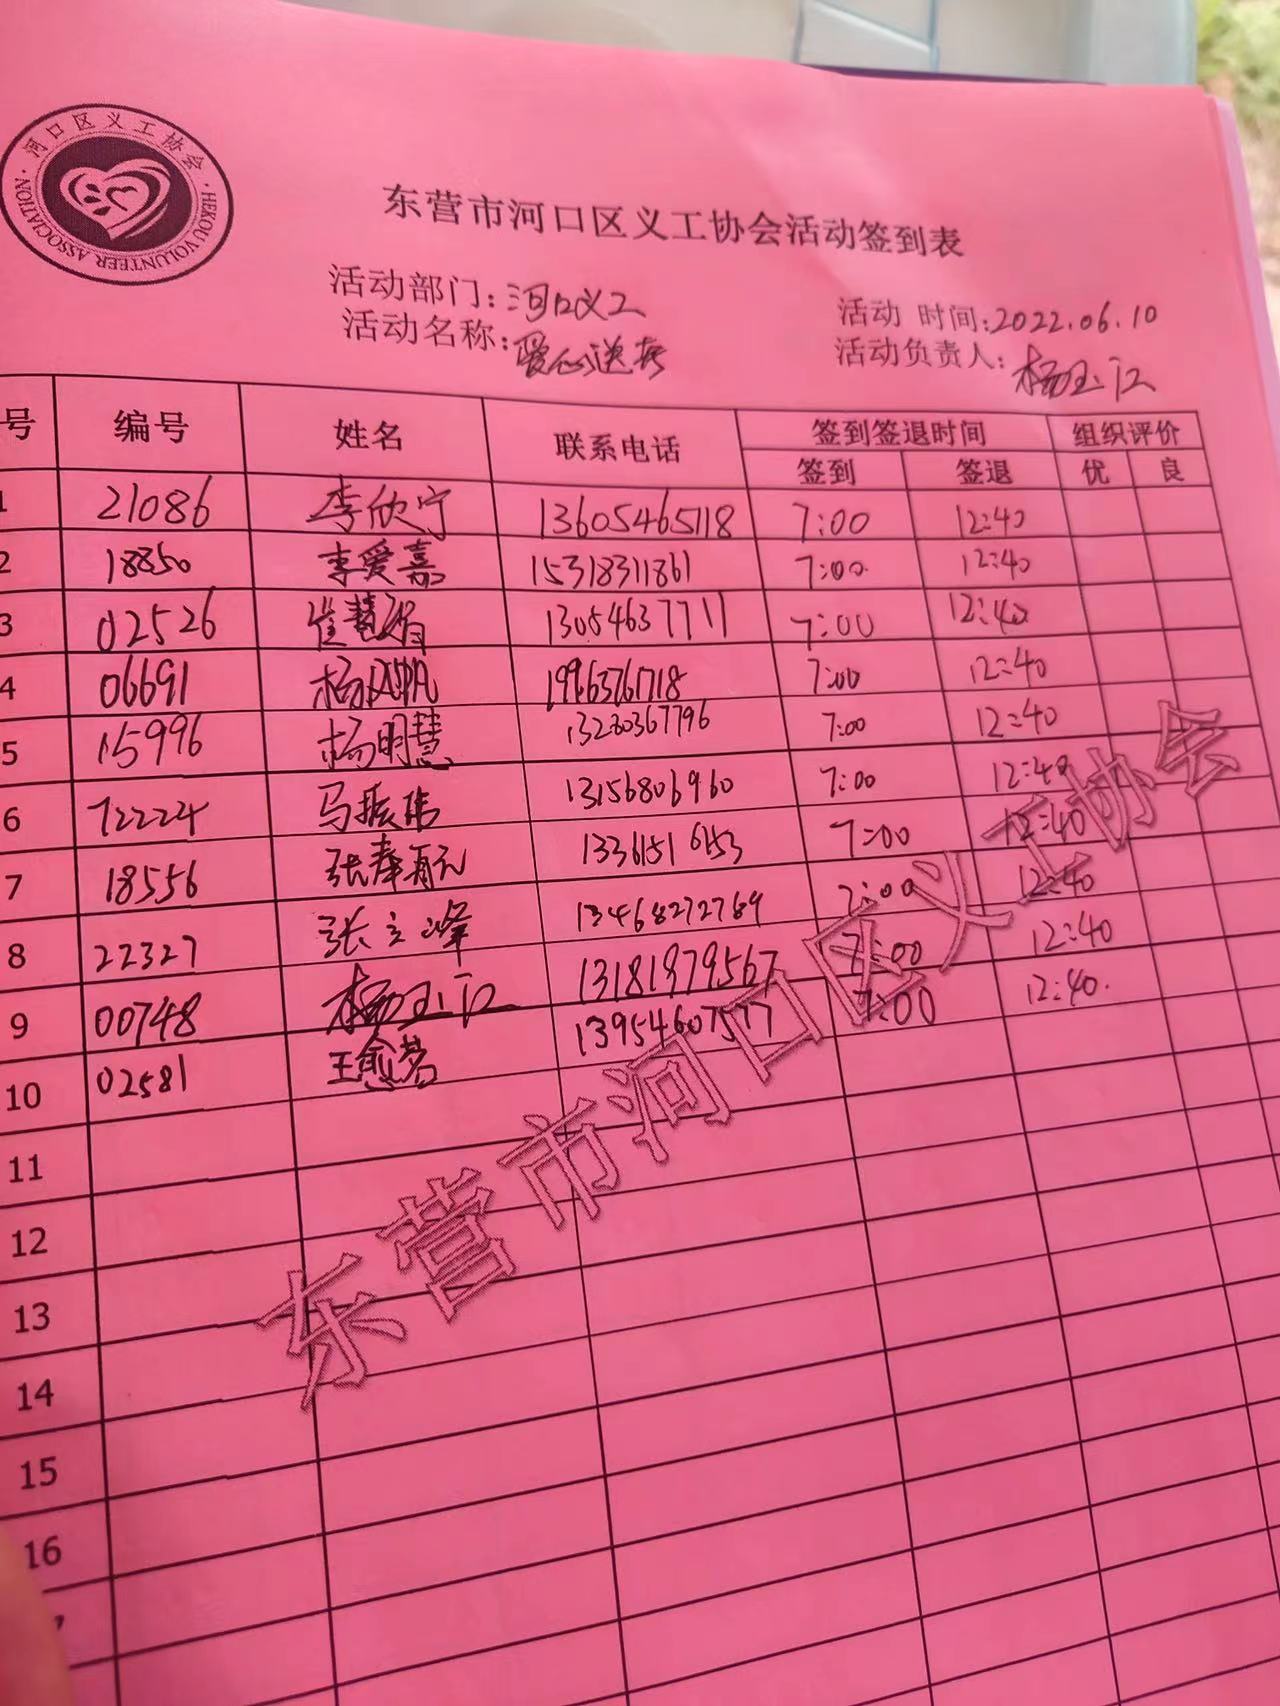 河口区义工协会
HEKOU VOLUNTEER ASSOCIATION
东营市河口区义工协会活动签到表
活动部门：河口义工 活动 时间：2022.06.10
活动名称：爱心送考 活动负责人：杨玉江
号 编号 姓名 联系电话 签到签退时间 组织评价
签到 签退 优 良
1 21086 李欣宁 13605465118 7:00 12:40
2 18850 李爱嘉 15318311861 7:00 12:40
3 02526 崔慧娟 13054637711 7:00 12:40
4 06691 杨 19963761718 7:00 12:40
5 15996 杨明慧 13280367796 7:00 12:40
6 72224 马振伟 13156806960 7:00 12:40
7 18556 张春 13361516153 7:00 12:40
8 22327 张立峰 13468272769 7:00 12:40
9 00748 杨玉江 13181979567 7:00 12:40
10 02581 王愈芳 13954607577 7:00 12:40.
11
12
13
14
15
16
东营市河口区义工协会